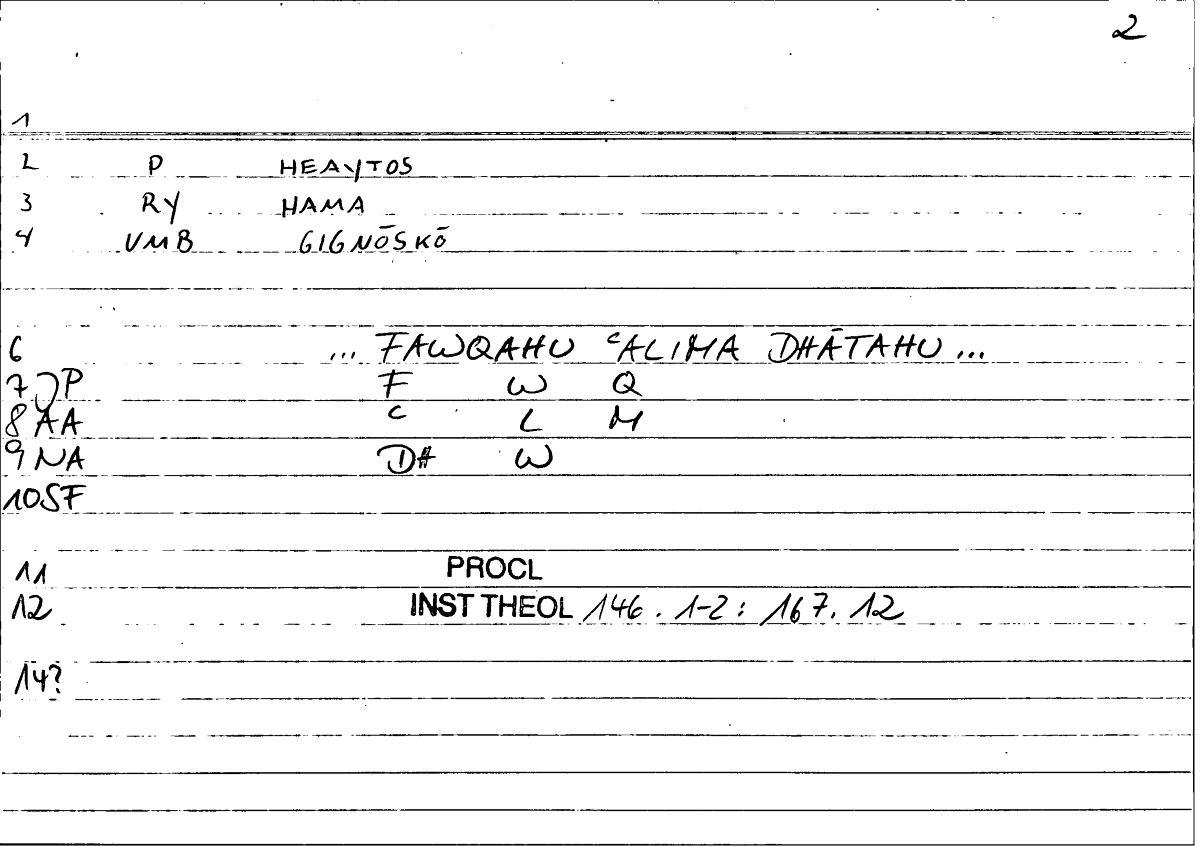 2
1
2 P HEAYTOS
3 RY HAMA
4 VMB GIGNŌSKŌ
6 ... FAWQAHU ᶜALIMA DHĀTAHU ...
7 JP F W Q
8 AA ᶜ L M
9 NA DH W
10 SF
11 PROCL
12 INST THEOL 146. 1-2: 167. 12
14?